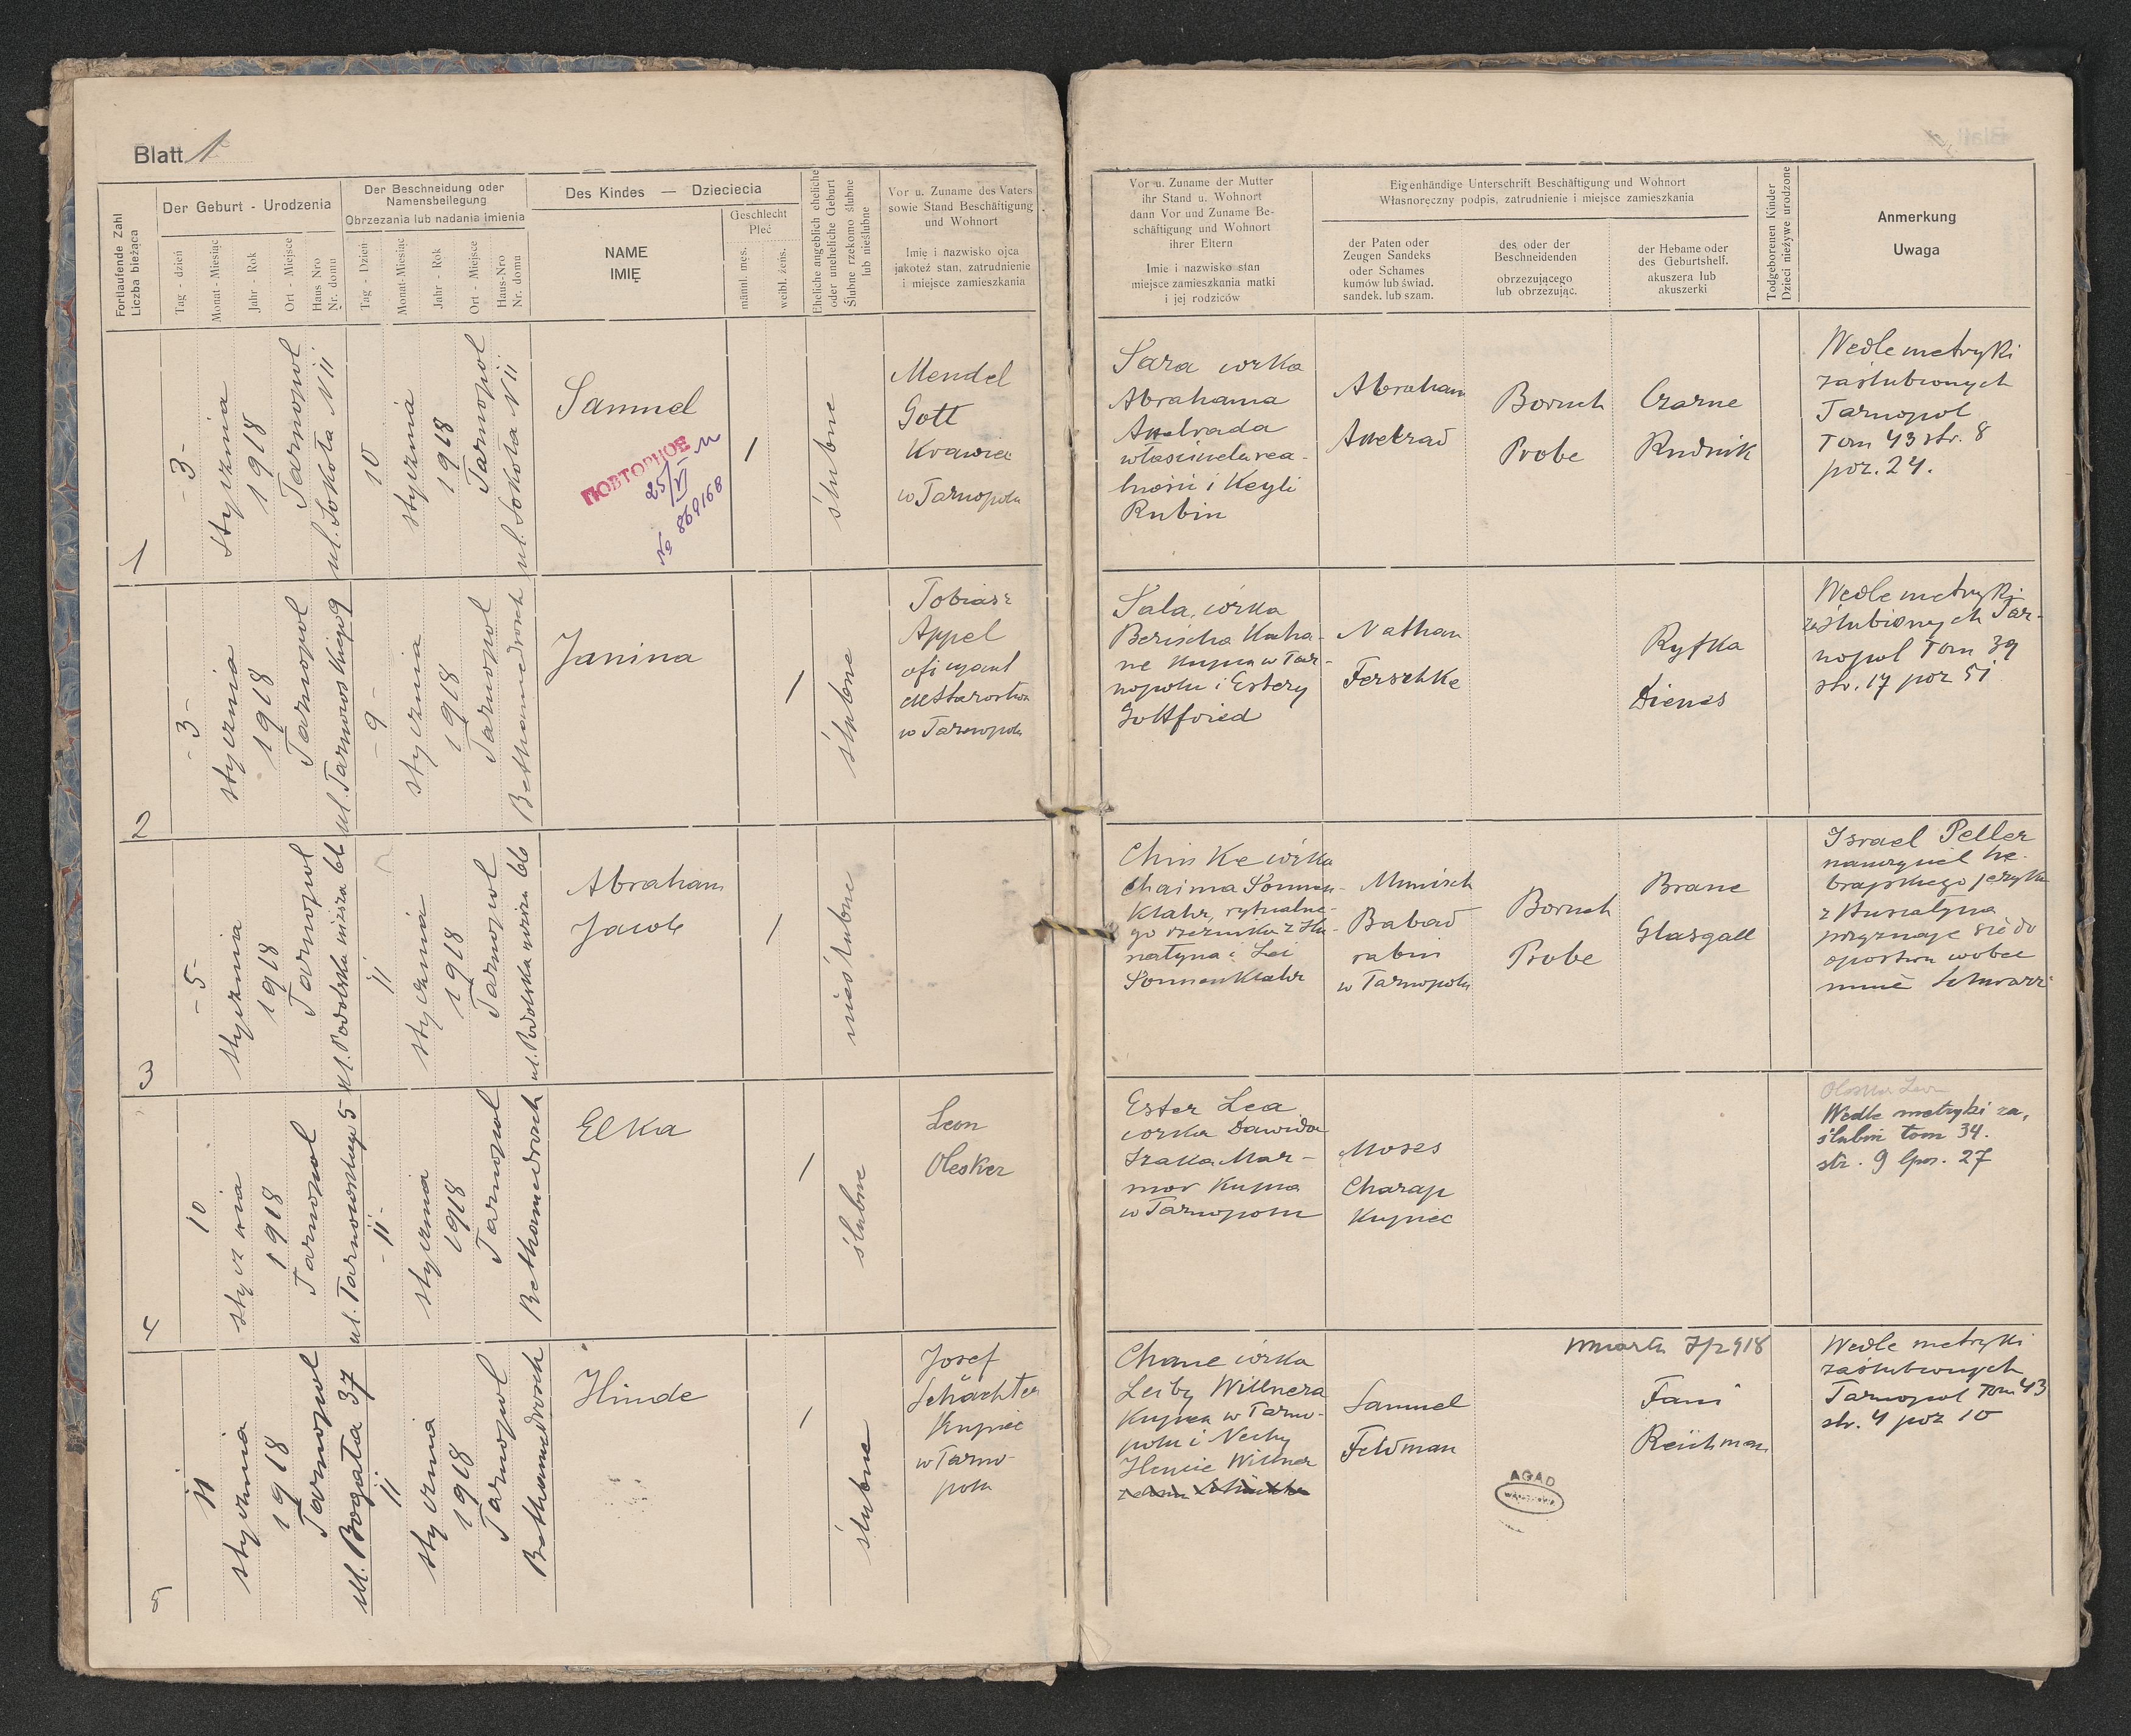 Blatt 1
Fortlaufende Zahl
Liczba bieżąca
Der Geburt - Urodzenia
Tag - dzień
Monat - Miesiąc
Jahr - Rok
Ort - Miejsce
Haus Nro
Nr. domu
Der Beschneidung oder
Namensbeilegung
Obrzezania lub nadania imienia
Tag - Dzień
Monat-Miesiąc
Jahr - Rok
Ort - Miejsce
Haus-Nro
Nr. domu
Des Kindes — Dzieciecia
NAME
IMIĘ
Geschlecht
Płeć
männl. męs.
weibl. żeńs.
Eheliche angeblich eheliche
oder uneheliche Geburt
Ślubne rzekomo ślubne
lub nieślubne
Vor u. Zuname des Vaters
sowie Stand Beschäftigung
und Wohnort
Imię i nazwisko ojca
jakoteż stan, zatrudnienie
i miejsce zamieszkania
Vor u. Zuname der Mutter
ihr Stand u. Wohnort
dann Vor und Zuname Be-
schäftigung und Wohnort
ihrer Eltern
Imie i nazwisko stan
miejsce zamieszkania matki
i jej rodziców
Eigenhändige Unterschrift Beschäftigung und Wohnort
Własnoreczny podpis, zatrudnienie i miejsce zamieszkania
der Paten oder
Zeugen Sandeks
oder Schames
kumów lub świad.
sandek. lub szam.
des oder der
Beschneidenden
obrzezującego
lub obrzezując.
der Hebame oder
des Geburtshelf.
akuszera lub
akuszerki
Todgeborenen Kinder
Dzieci nieżywe urodzone
Anmerkung
Uwaga
1
- 3 -
stycznia
1918
Tarnopol
ul. Sokoła N 11
10
stycznia
1918
Tarnopol
ul. Sokoła N 11
Samuel
ПОВТОРНОЕ
25/VI
№ 869168
/
ślubne
Mendel
Gott
Krawiec
w Tarnopolu
Sara córka
Abrahama
właściciela rea-
lności i Keyli
Rubin
Abraham
Boruch
Probe
Czarne
Rudnik
Wedle metryki
zaślubionych
Tarnopol
Tom 43 str. 8
poz. 24.
2
- 3 -
stycznia
1918
Tarnopol
ul. Tarnowskiego 9
- 9 -
stycznia
1918
Tarnopol
Bethamedrosch
Janina
/
ślubne
Tobiasz
Appel
oficyant
w Tarnopolu
Sala, córka
Berischa Kaha-
ne kupca w Tar-
nopolu i Estery
Gottfried
Nathan
Ferschke
Ryfka
Dienes
Wedle metryki
zaślubionych Tar-
nopol Tom 39
str. 17 poz 51
3
- 5 -
stycznia
1918
Tarnopol
ul. Podolska niższa 66
11
stycznia
1918
Tarnopol
ul. Podolska niższa 66
Abraham
Jacob
/
nieślubne
Chinke córka
Chaima Sonnen-
klahr, rytualne-
go rzeznika z Hu-
siatyna i Lei
Sonnenklahr
Munisch
Babad
rabin
w Tarnopolu
Boruch
Probe
Brane
Glasgall
Israel Peller
nauczyciel he-
brajskiego języka
z Husiatyna
przyznaje się do
ojcostwa wobec
mnie Schwarz
4
10
stycznia
1918
Tarnopol
ul. Tarnowskiego 5
- 11 -
stycznia
1918
Tarnopol
Bethamedrosch
Elka
/
ślubne
Leon
Olesker
Ester Lea
córka Dawida
Izaka Mar-
mor kupca
w Tarnopolu
Moses
Charap
Kupiec
Olesker Leon
Wedle metryki za-
ślubin tom 34.
str. 9 lpos. 27
5
11
stycznia
1918
Tarnopol
ul. Bogata 37
11
stycznia
1918
Tarnopol
Bethamedrosch
Hinde
/
ślubne
Josef
Schächter
Kupiec
w Tarno-
polu
Chane córka
Leiby Willnera
Kupca w Tarno-
polu i Nechy
Willner
Samuel
Feldman
umarła 7/2 918
Fani
Reichman
Wedle metryki
zaślubionych
Tarnopol Tom 43
str. 4 poz 10
AGAD
WARSZAWA